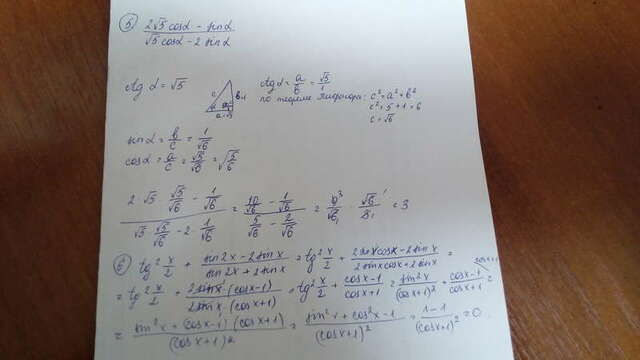 5) (2√5 cosα - sinα)/(√5 cosα - 2 sinα)
ctg α = √5
c b=1 a=√5
ctg α = a/b = √5/1
по теореме Пифагора: c² = a² + b²
c² = 5 + 1 = 6
c = √6
sin α = b/c = 1/√6
cos α = a/c = √5/√6 = √(5/6)
(2 √5 √5/√6 - 1/√6)/(√5 √5/√6 - 2 · 1/√6) = (10/√6 - 1/√6)/(5/√6 - 2/√6) = 9/√6 · √6/3 = 3
6) tg² x/2 + (sin2x - 2sinx)/(sin2x + 2sinx) = tg² x/2 + (2sinx cosx - 2sinx)/(2sinx cosx + 2sinx) =
= tg² x/2 + (2sinx · (cosx - 1))/(2sinx · (cosx + 1)) = tg² x/2 + (cosx - 1)/(cosx + 1) = sin²x/(cosx + 1)² + (cosx - 1)/(cosx + 1) =
= (sin²x + (cosx - 1)·(cosx + 1))/(cosx + 1)² = (sin²x + cos²x - 1)/(cosx + 1)² = (1 - 1)/(cosx + 1)² = 0